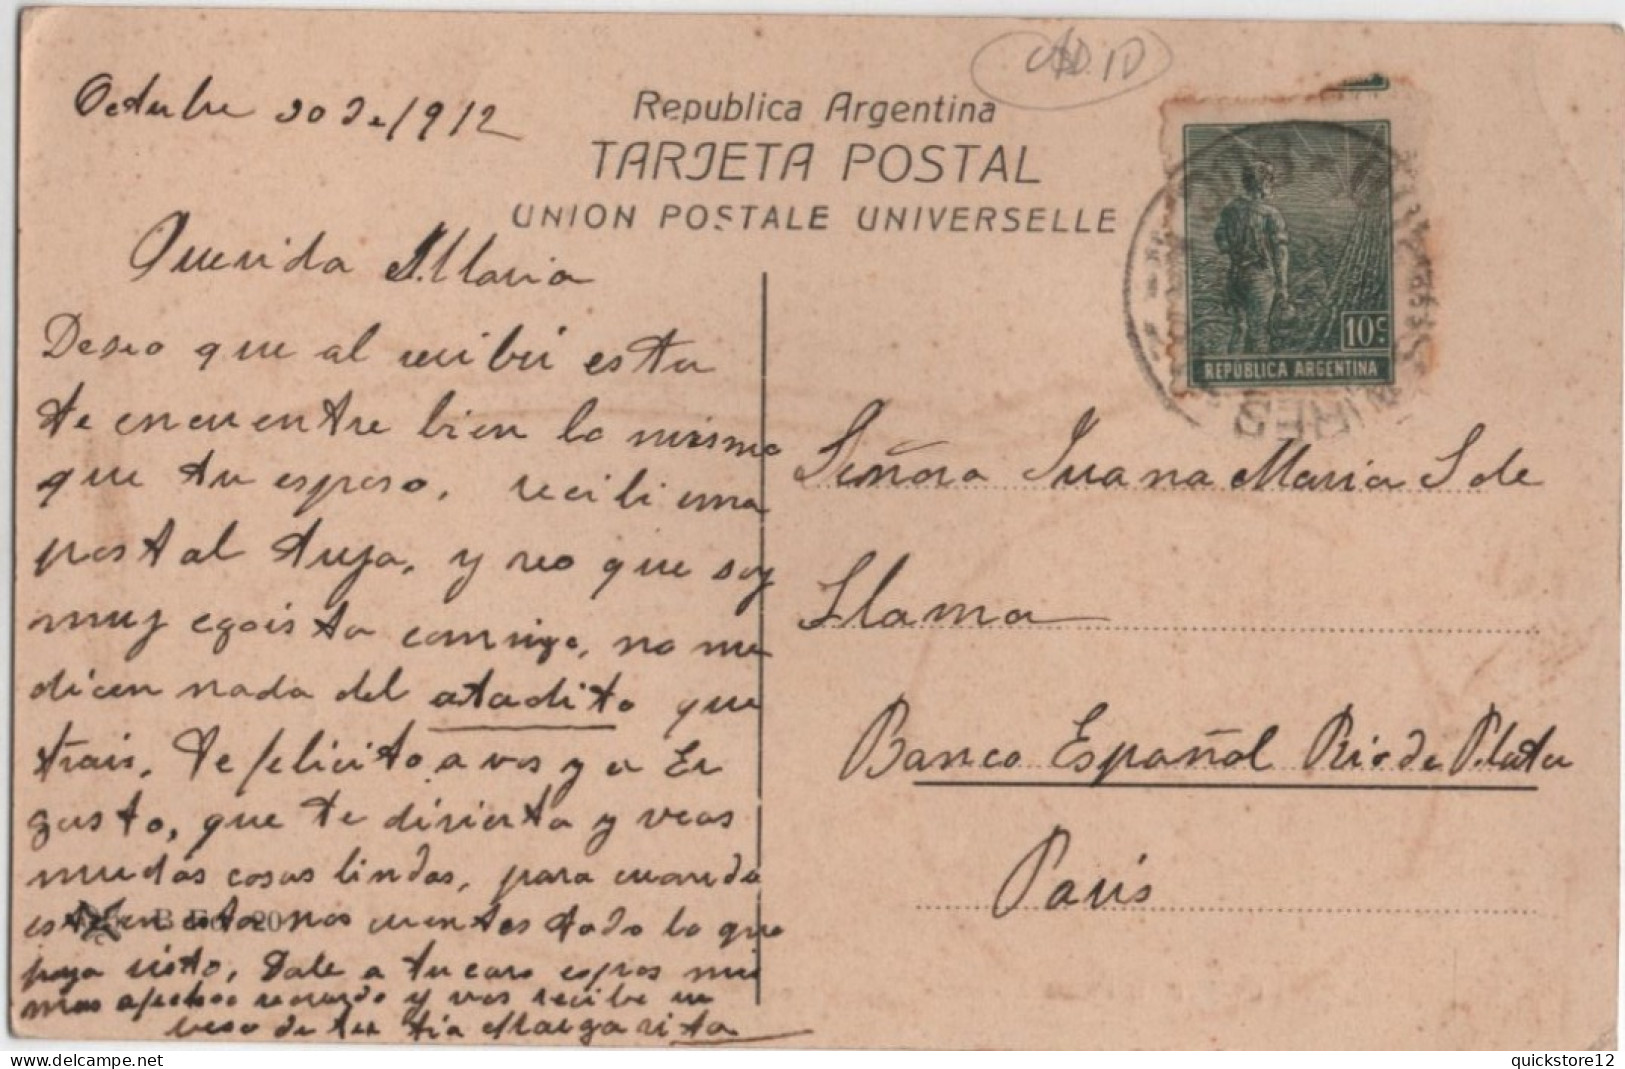 Octubre 30 de 1912
Republica Argentina
TARJETA POSTAL
UNION POSTALE UNIVERSELLE
10c
REPÚBLICA ARGENTINA
AIRES
Querida Maria
Deseo que al recibir esta
te encuentre bien lo mismo
que tu esposo, recibi una
postal tuya, y veo que soy
muy egoista conmigo, no me
dicen nada del atadito que
trais, te felicito a vos y a Er
gasto, que te divierta y veas
mudas cosas lindas, para cuando
esten esta nos cuentes todo lo que
haya visto, Dale a tu caro espos mis
mas afectuoso recuerdo y vos recibe un
beso de tu tia Margarita
Señora Juana Maria S de
Llama
Banco Español Rio de Plata
Paris
delcampe.net
quickstore12